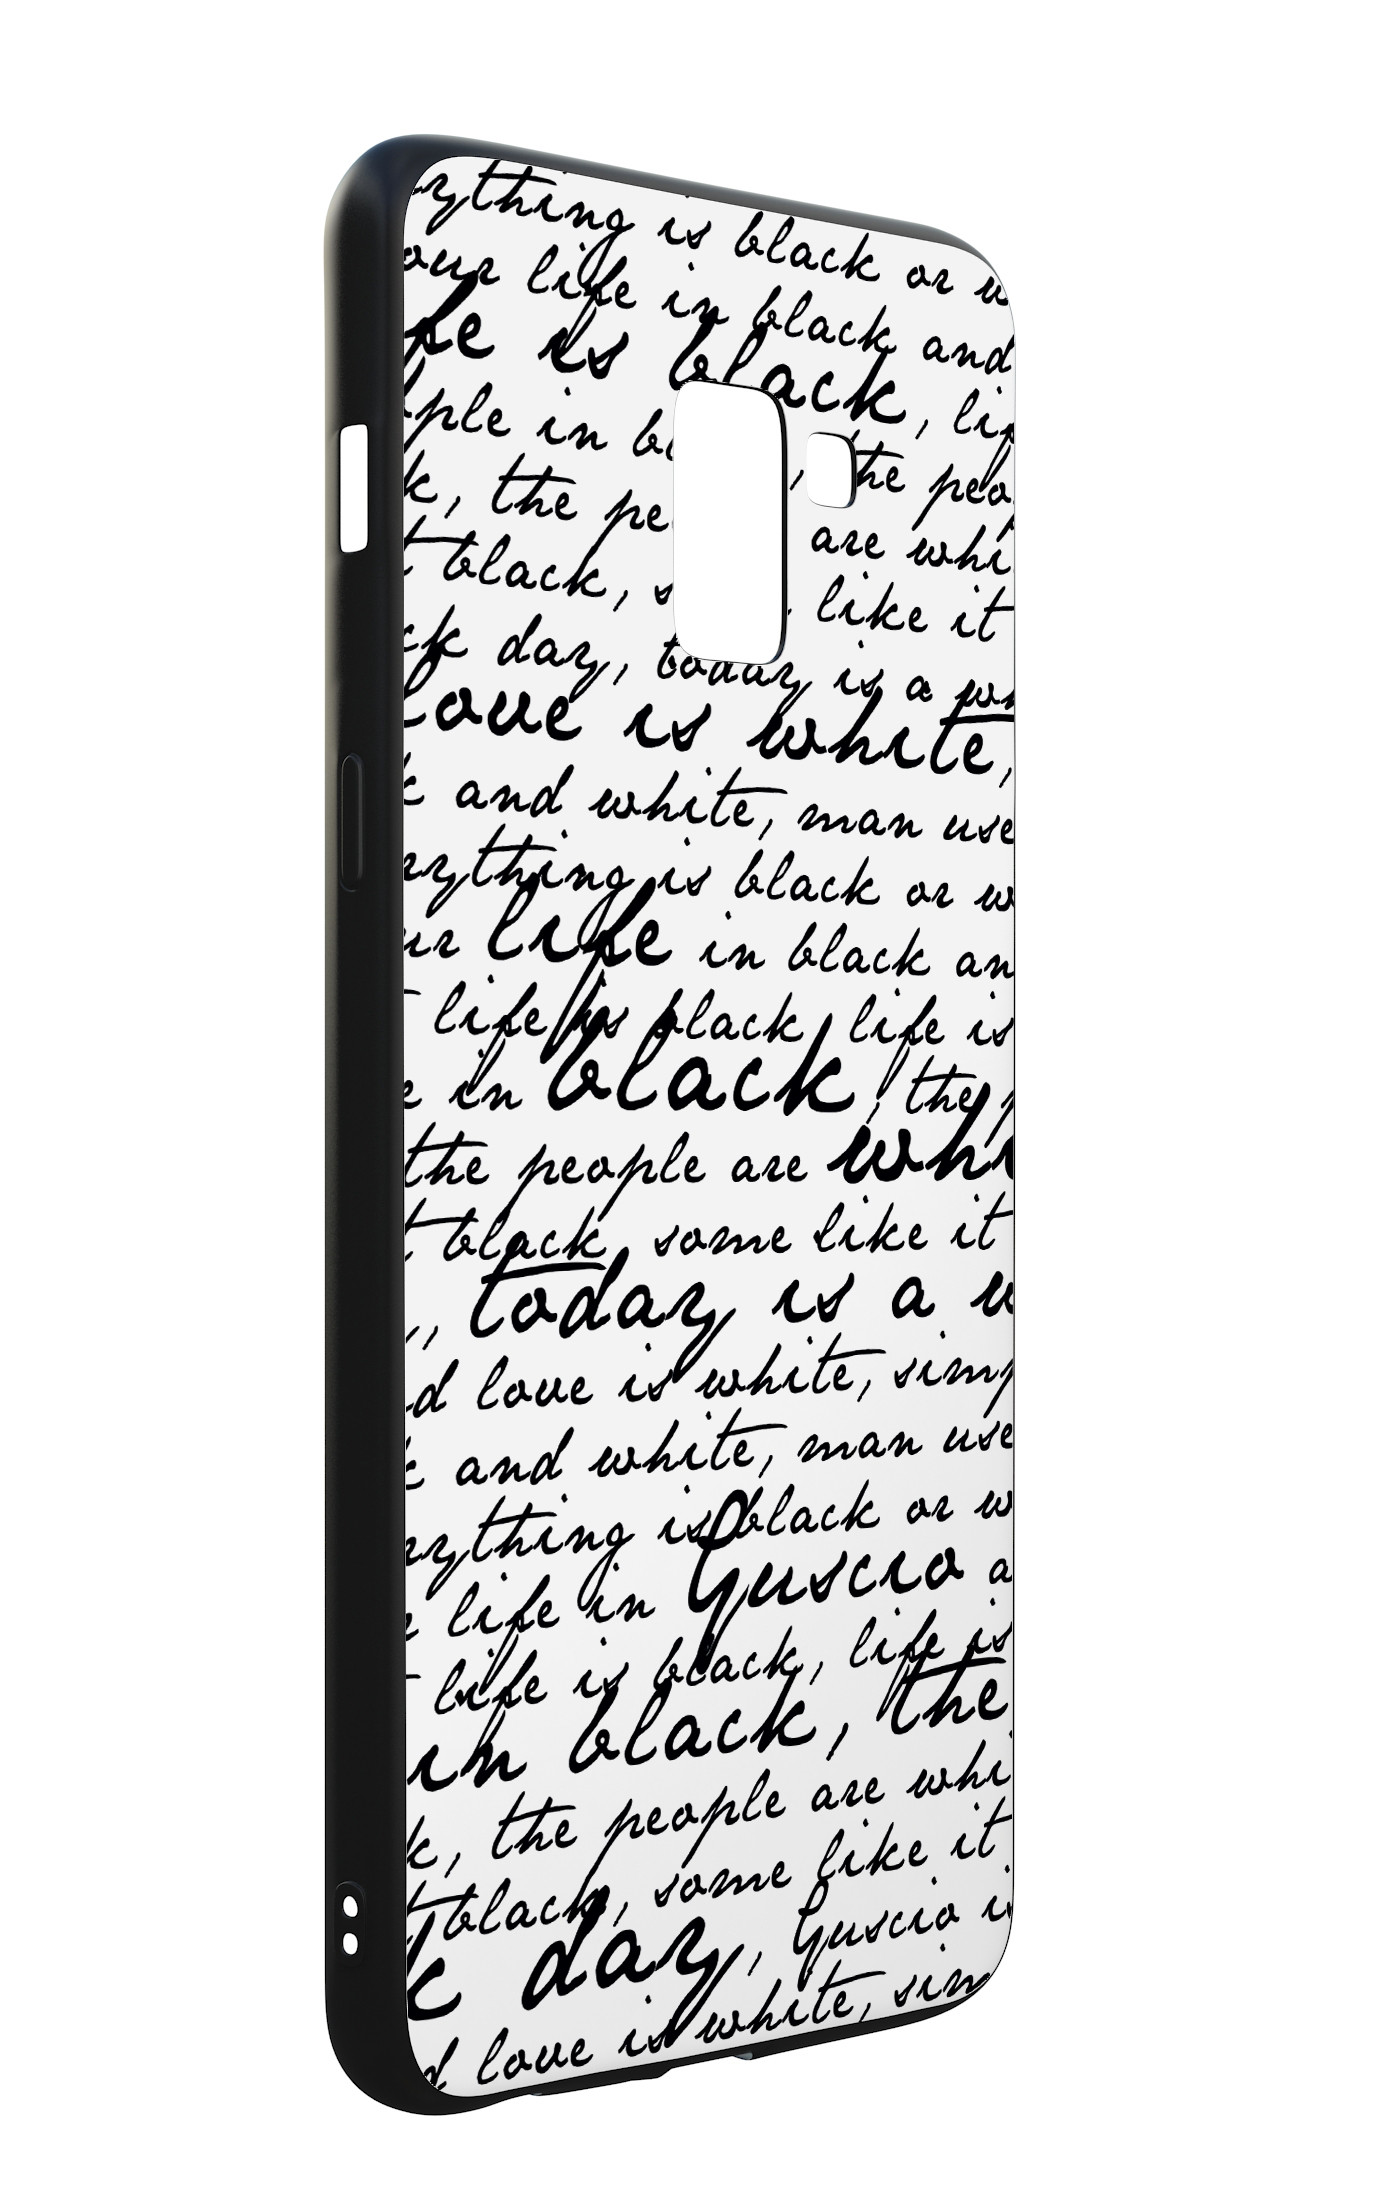 rything is black or w
our life in black and
fe is black, lif
ople in bl , the peo
k, the pe are whi
t black, s like it
ck day, today is a wh
love is white,
k and white, man use
rything is black or w
ur life in black an
life is black life is
e in black, the p
the people are whi
t black, some like it
, today is a w
d love is white, simp
k and white, man use
rything is black or w
r life in Guscio a
life is black, life is
in black, the
k, the people are whi
t black, some like it
k day, Guscio is
d love is white, sim